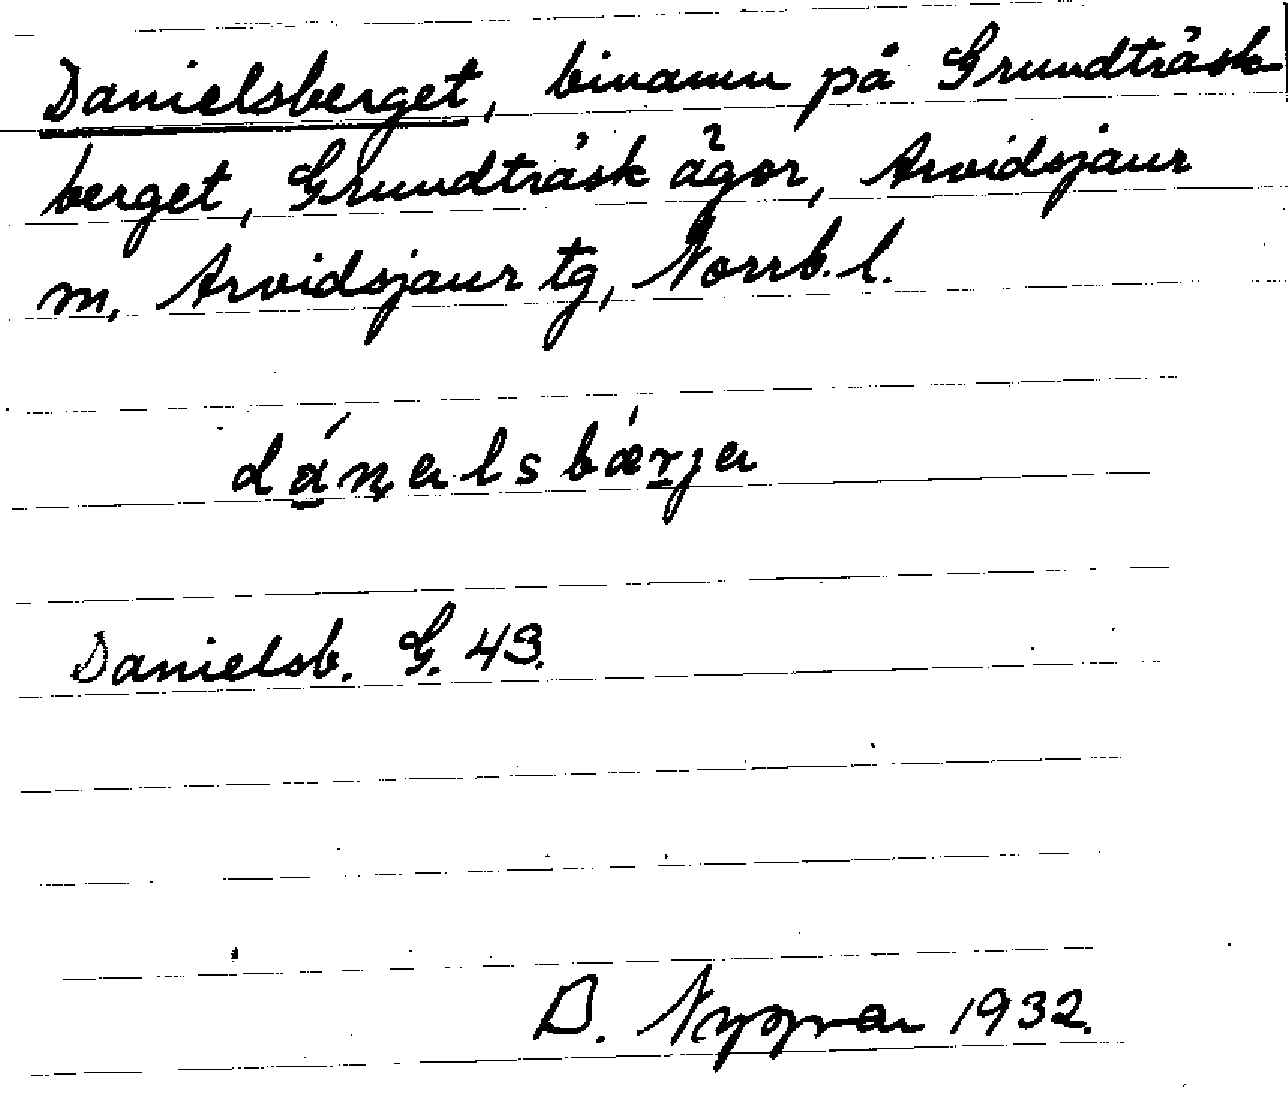 Danielsberget, binamn på Grundträsk-
berget, Grundträsk ägor, Arvidsjaur
m, Arvidsjaur tg, Norrb. l.
dánalsbærja
Danielsb. G. 43.
D. 1932.